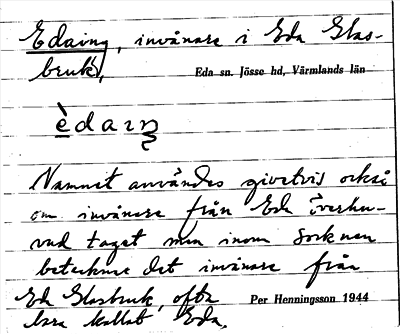 Edaing, invånare i Eda Glas-
bruk,
Eda sn. Jösse hd, Värmlands län
èdaıŋ
Namnet användes givetvis också
om invånare från Eda överhu-
vud taget men inom socknen
betecknar det invånare från
Eda Glasbruk, ofta
Per Henningsson 1944
bara kallat Eda.